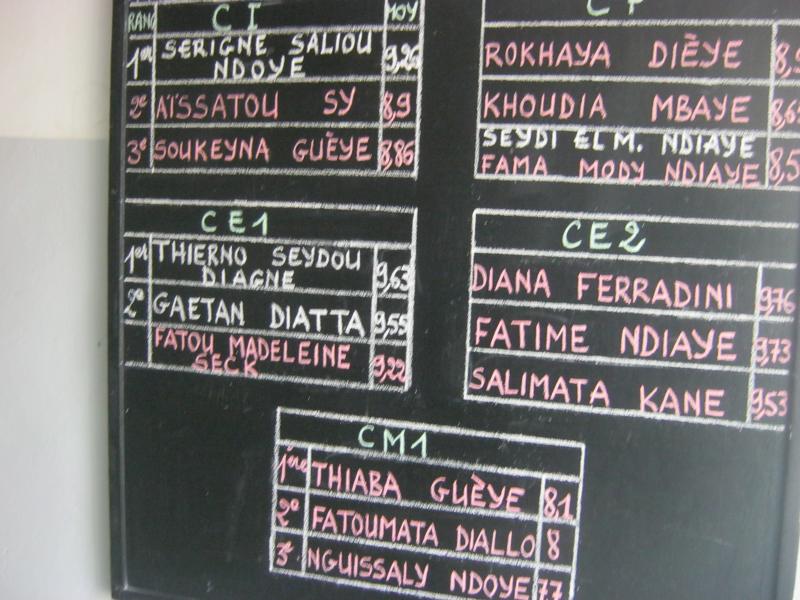 RANG CI MOY
1er SERIGNE SALIOU NDOYE 9,26
2e AÏSSATOU SY 8,9
3e SOUKEYNA GUÈYE 8,86
ROKHAYA DIÈYE
KHOUDIA MBAYE
SEYDI EL M. NDIAYE
FAMA MODY NDIAYE
CE1
1er THIERNO SEYDOU DIAGNE 9,63
2e GAETAN DIATTA 9,55
FATOU MADELEINE SECK 9,22
CE2
DIANA FERRADINI 9,76
FATIME NDIAYE 9,73
SALIMATA KANE 9,53
CM1
1ère THIABA GUÈYE 8,1
2e FATOUMATA DIALLO 8
3e NGUISSALY NDOYE 7,7